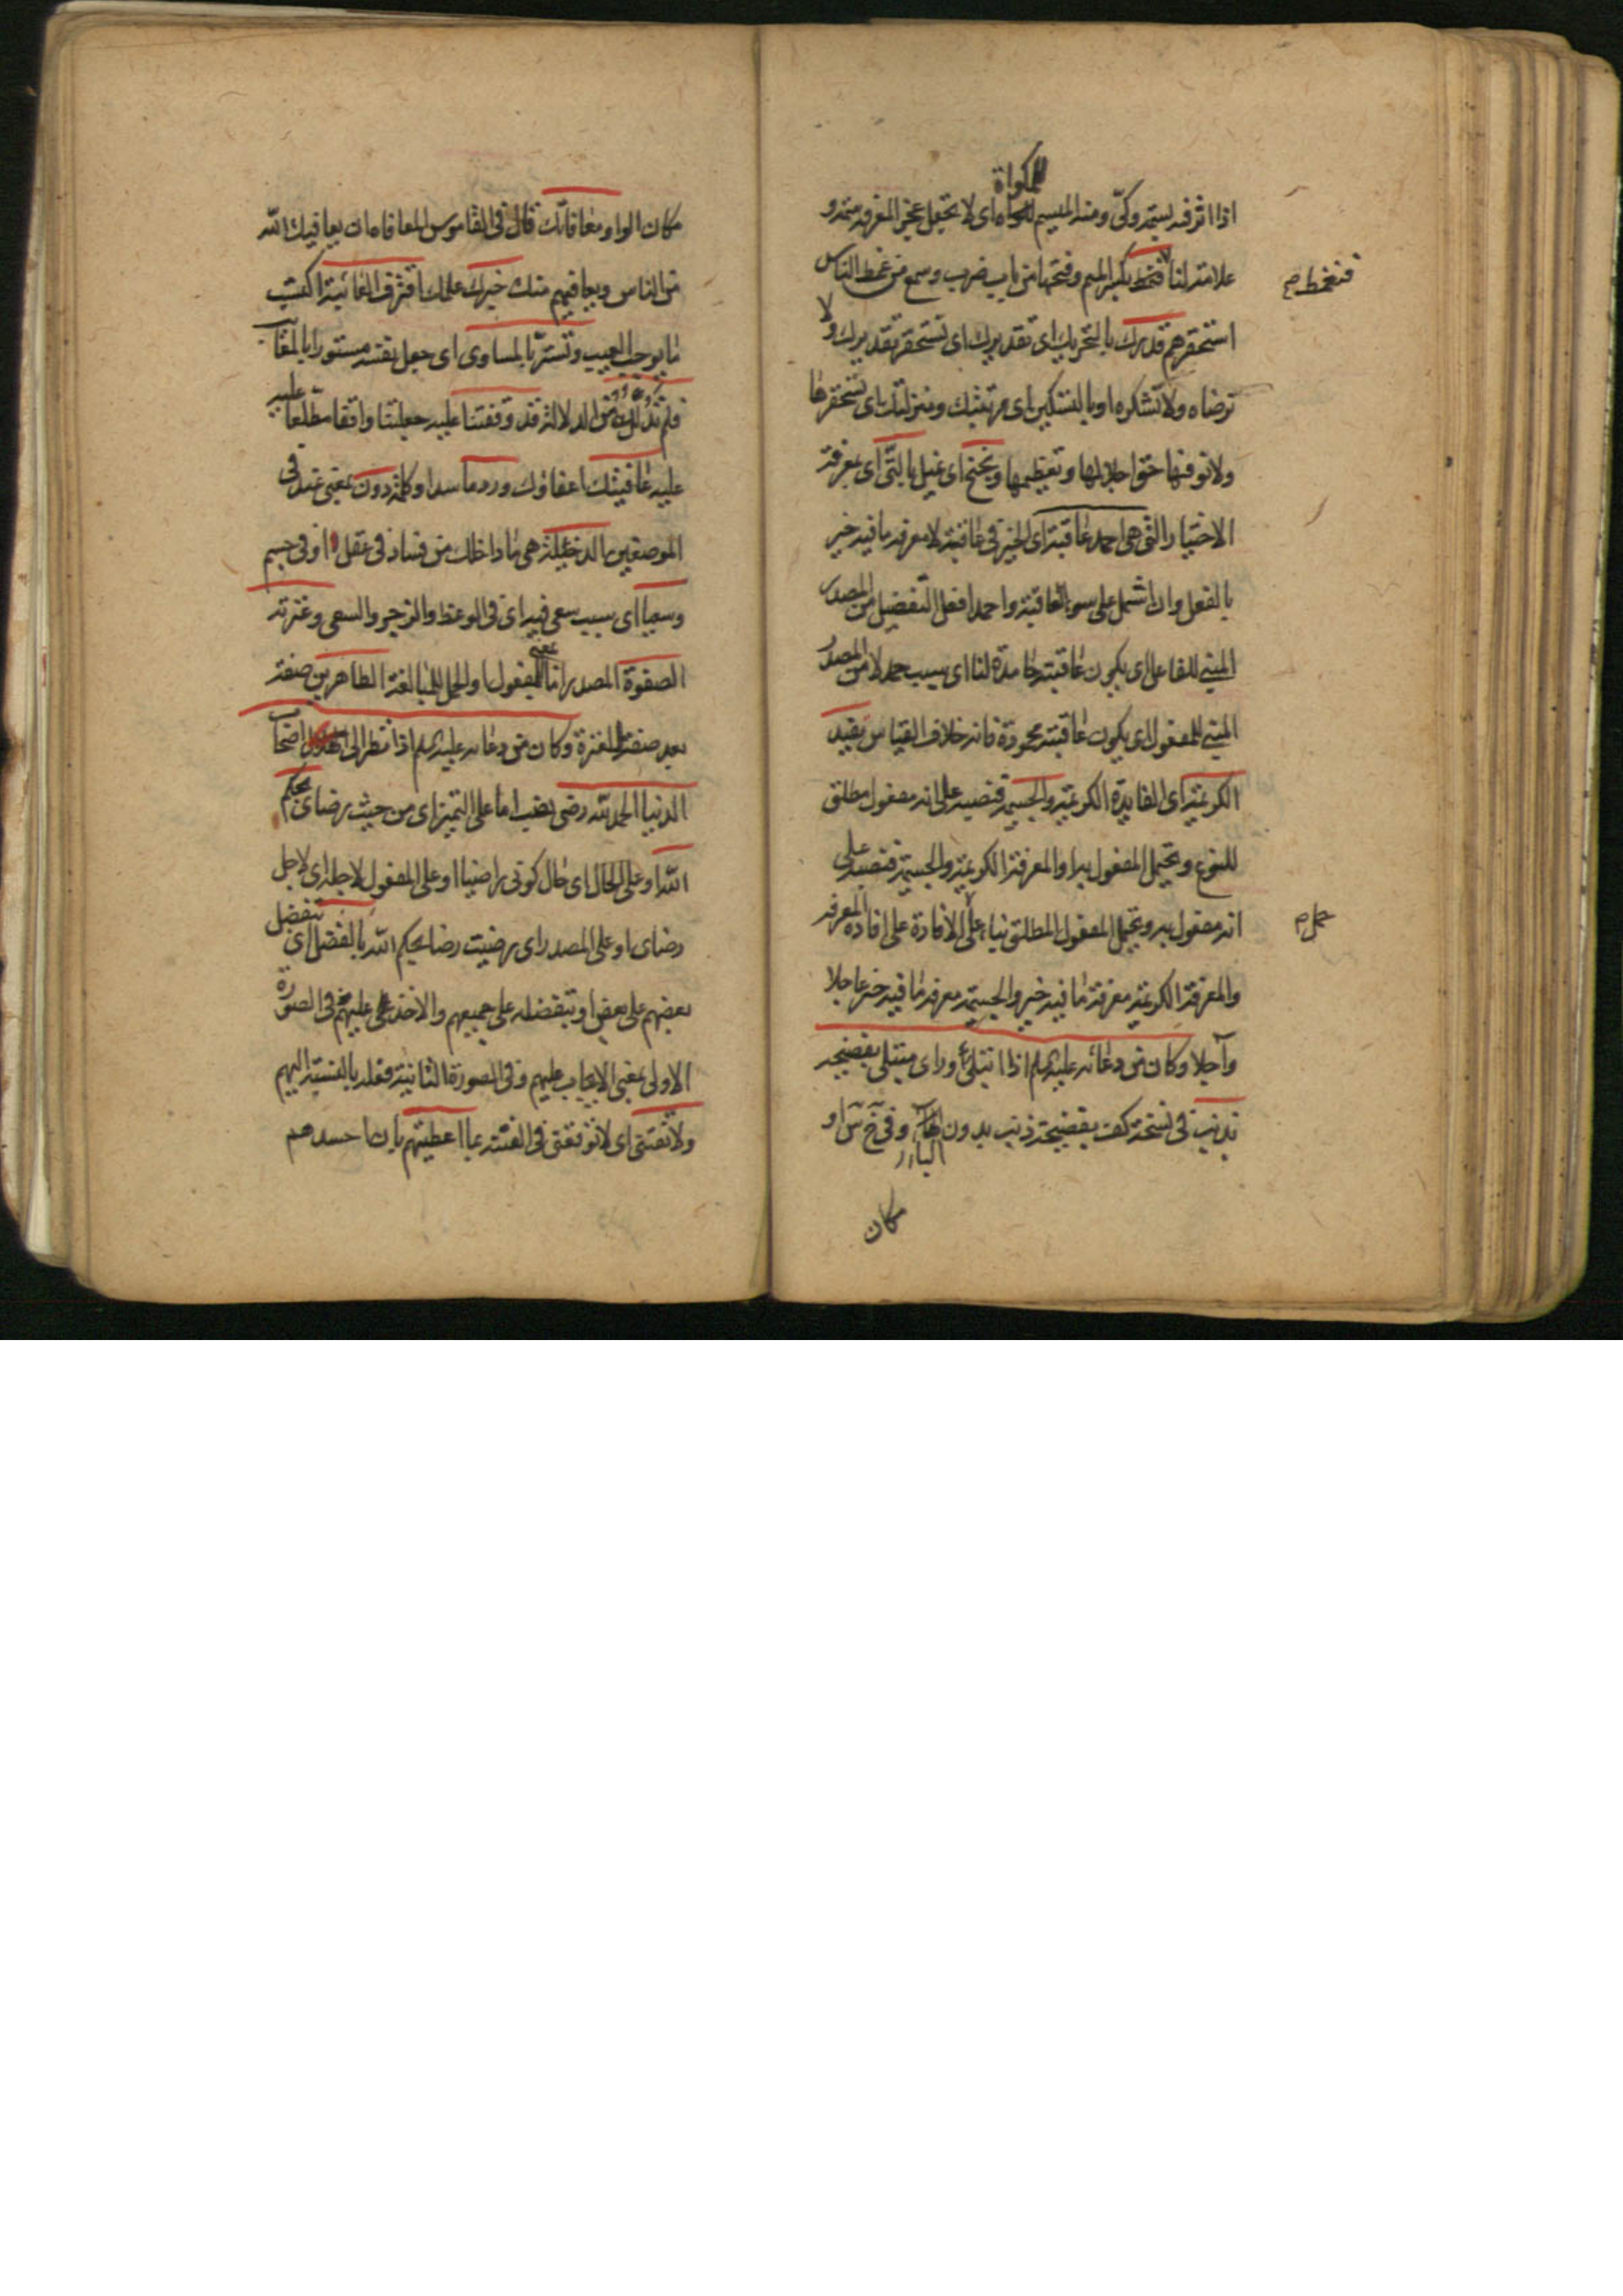 للمكواة
اذا اثر فيه بسمة وكىّ ومنه الميسم للمكواه اى لا تجعل عجز المعرفة سمة و
علامة لنا فنغمط بكسر الميم وفتحها من باب ضرب وسمع من غمط الناس
فنغمط صح
استحقرهم قدرك بالتحريك اى تقديرك اى نستحقر تقديرك ولا
نرضاه ولا نشكره او بالتسكين اى مرتبتك ومنزلتك اى نستحقرها
ولا نوفيها حق اجلالها وتعظيمها ونجنح اى نميل بالتى اى بمعرفة
الاختيار التى هى احمد عاقبة اى الخير فى عاقبته لا معرفة ما فيه خير
بالفعل وان اشتمل على سوء العاقبة واحمد افعل التفضيل من المصدر
المبنى للفاعل اى يكون عاقبته حامدة لنا اى بسبب حمد لا من المصدر
المبنى للمفعول اى يكون عاقبته محمودة فانه خلاف القياس يفيد
الكريمة اى الفايدة الكريمة والجسيمة فنصبه على انه مفعول مطلق
للنوع ويحتمل المفعول به او المعرفة الكريمة والجسيمة فنصبه على
انه مفعول به ويحتمل المفعول المطلق بناء على الافادة على افاده المعرفة
حمل صح
والمعرفة الكريمة معرفة ما فيه خير والجسيمة معرفة ما فيه خير عاجلا
وآجلا وكان من دعائه عليه السلم اذا ابتلى وراى مبتلى بفضيحة
بذنب فى نسخة كف بفضيحة ذنب بدون الباء وفى خ س او
مكان
مكان الواو معافاتك قال فى القاموس المعافاه ان يعافيك الله
من الناس ويعافيهم منك خبرك علمك اقترف الفائبة اكتسب
ما يوجب العيب وتستر بالمساوى اى جعل نفسه مستورا بالمعايب
فلم تدلل من الدلالة قد وقفتنا عليه جعلتنا واقفا مطلعا عليه
عليه عافيتك اعفاؤك وردما سدا وكلمة دون بمعنى عند فى
الموضعين الدخيلة هى ما داخلك من فساد فى عقل او فى جسم
وسعيا اى بسبب سعى فيه اى فى الوعظ والزجر والسعى وعترته
الصفوة المصدر اما بمعنى المفعول او الحمل للمبالغة الطاهرين صفة
بعد صفة للعترة وكان من دعائه عليه السلم اذا نظر الى اصحاب
الدنيا الحمد لله رضى نصب اما على التميز اى من حيث رضاى بحكم
الله او على الحال اى حال كونى راضيا او على المفعول لاجله اى لاجل
رضاى او على المصدر اى رضيت رضا بحكم الله بالفضل اى بتفضل
بعضهم على بعض او بتفضله على جميعهم والاخذ على عليهم فى الصورة
الاولى بمعنى الايجاب عليهم وفى الصورة الثانية فعله بالنسبة اليهم
ولا تفتنى اى لا توقعنى فى الفتنة بما اعطيتهم بان احسدهم